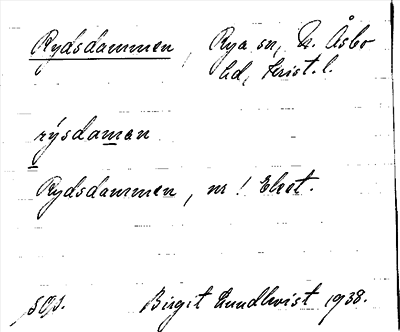 Rydsdammen, Rya sn, N. Åsbo
hd, Krist. l.
rýsdamen
Rydsdammen, nr 1 Ekot.
sof. Birgit Lundkvist 1938.